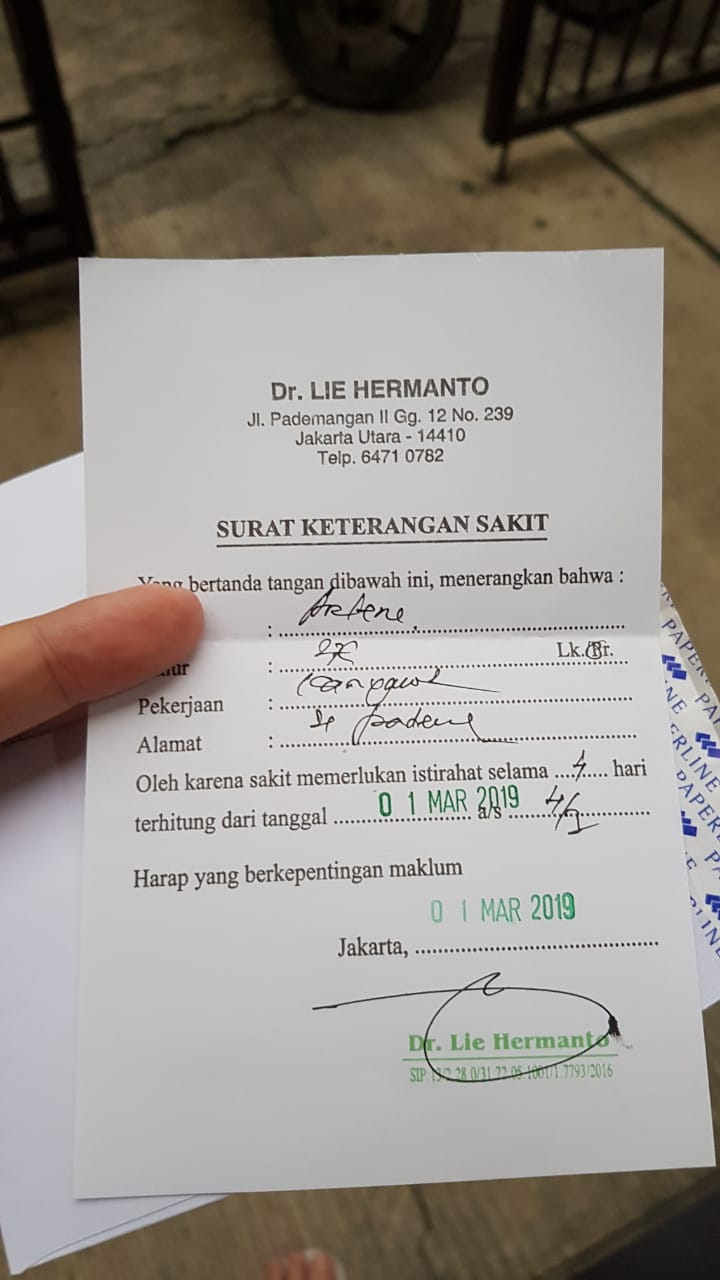 Dr. LIE HERMANTO
Jl. Pademangan II Gg. 12 No. 239
Jakarta Utara - 14410
Telp. 6471 0782
SURAT KETERANGAN SAKIT
Yang bertanda tangan dibawah ini, menerangkan bahwa :
: Arlene
: Lk./Pr.
Pekerjaan :
Alamat :
Oleh karena sakit memerlukan istirahat selama ....4.... hari
terhitung dari tanggal 01 MAR 2019 a/s
Harap yang berkepentingan maklum
01 MAR 2019
Jakarta,
Dr. Lie Hermanto
SIP
PAPERLINE